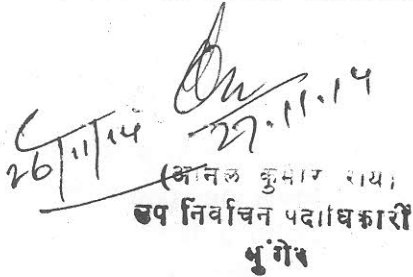 27.11.14
26/11/14
(अनिल कुमार राय)
उप निर्वाचन पदाधिकारी
मुंगेर